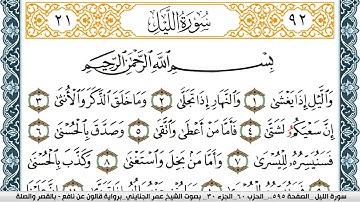 ٢١ سُورَةُ اللَّيْلِ ٩٢
بِسْمِ اللَّهِ الرَّحْمَٰنِ الرَّحِيمِ
وَاللَّيْلِ إِذَا يَغْشَىٰ ١ وَالنَّهَارِ إِذَا تَجَلَّىٰ ٢ وَمَا خَلَقَ الذَّكَرَ وَالْأُنْثَىٰ ٣
إِنَّ سَعْيَكُمُ لَشَتَّىٰ ٤ فَأَمَّا مَنْ أَعْطَىٰ وَاتَّقَىٰ ٥ وَصَدَّقَ بِالْحُسْنَىٰ ٦
فَسَنُيَسِّرُهُ لِلْيُسْرَىٰ ٧ وَأَمَّا مَنْ بَخِلَ وَاسْتَغْنَىٰ ٨ وَكَذَّبَ بِالْحُسْنَىٰ
سورة الليل - الصفحة ٥٩٥ - الحزب ٦٠ - الجزء ٣٠ - بصوت الشيخ عمر الجنايني - برواية قالون عن نافع - بالقصر والصلة